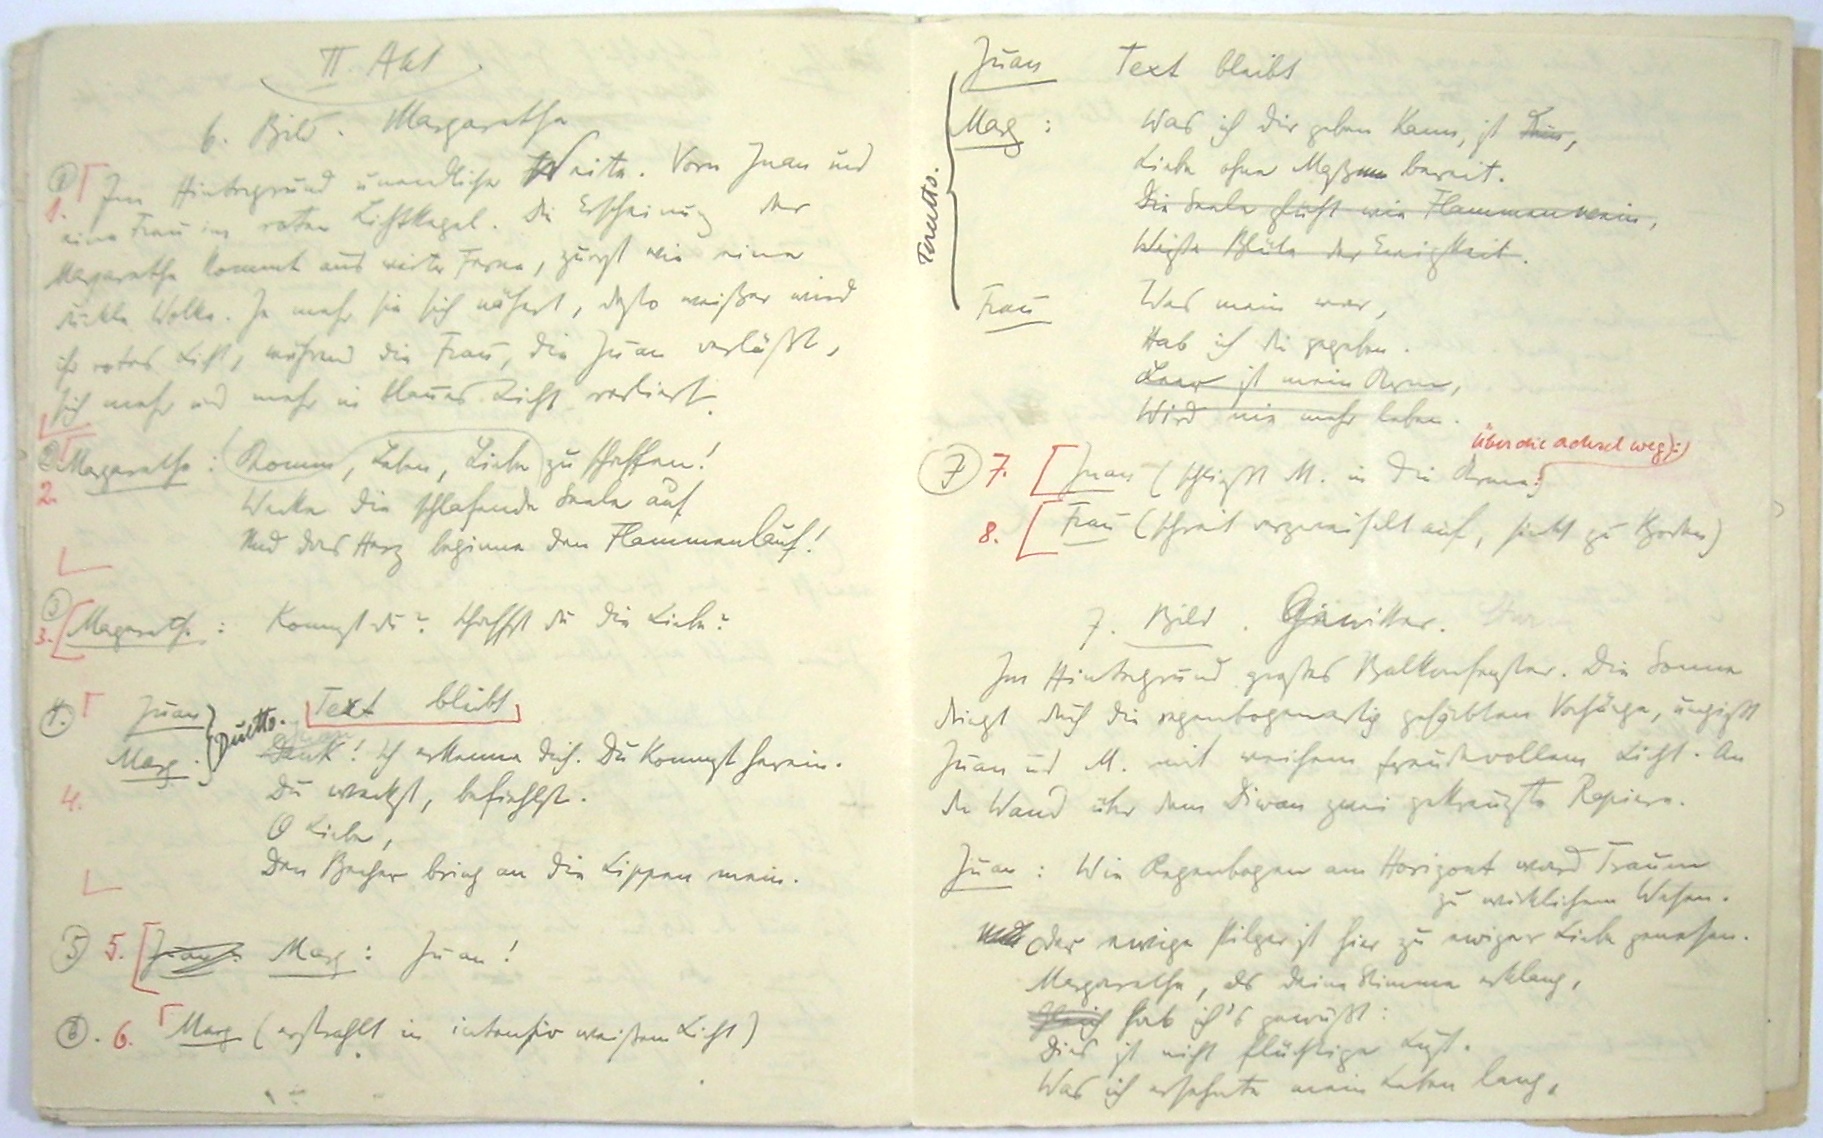 II. Akt
6. Bild. Margarethe
① 1. Im Hintergrund unendliche Weite. Vorn Juan und
eine Frau im roten Lichtkegel. Die Erscheinung der
Margarethe kommt aus weiter Ferne, zuerst wie eine
dunkle Wolke. Je mehr sie sich nähert, desto weißer wird
ihr rotes Licht, während die Frau, die Juan verläßt,
sich mehr und mehr in blaues Licht verliert.
② 2. Margarethe: Komm, Leben, Liebe zu schaffen!
Wecke die schlafende Seele auf
Und das Herz beginne den Flammenlauf!
③ 3. Margarethe: Kommst du? Schaffst du die Liebe?
4. Juan Text bleibt
Marg. Duetto. Dank! Ich erkenne dich. Du kommst herein.
4. Du weckst, befiehlst.
O Liebe,
Den Becher bring an die Lippen mein.
⑤ 5. Juan: Marg: Juan!
⑥. 6. Marg (erstrahlt in intensiv weißem Licht)
Juan Text bleibt
Terzetto.
Marg: Was ich dir geben kann, ist Dein,
Liebe ohne Maß bereit.
Die Seele glüht wie Flammenwein,
Weiße Blüte der Ewigkeit.
Frau Was mein war,
Hab ich dir gegeben.
Leer ist mein Arm,
Wird nie mehr leben.
über die Achsel weg):)
⑦ 7. Juan (schließt M. in die Arme)
8. Frau (schreit verzweifelt auf, sinkt zu Boden)
7. Bild. Gewitter.
Im Hintergrund großes Balkonfenster. Die Sonne
dringt durch die regenbogenartig gefärbten Vorhänge, umgießt
Juan und M. mit weichem freudevollem Licht. An
der Wand über dem Diwan zwei gekreuzte Rapiere.
Juan: Wie Regenbogen am Horizont ward Traum
zu wirklichem Wesen.
Der ewige Pilger ist hier zu ewiger Liebe genesen.
Margarethe, als deine Stimme erklang,
hab ich's gewußt:
Dies ist nicht flüchtige Lust.
Was ich ersehnte mein Leben lang,